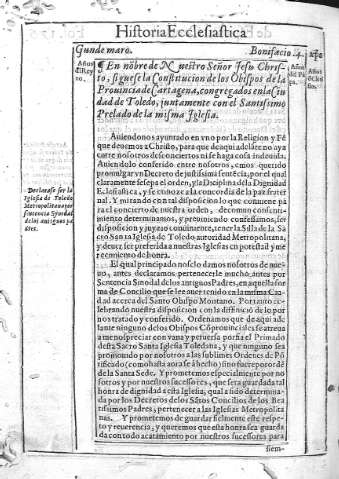 Historia Ecclesiastica
Gundemaro. Bonifacio 4.
Años
del Rey
no.
¶ En nõbre de Nuestro Señor Iesu Chris-
to, siguese la Constitucion de los Obispos de la
Prouincia de Cartagena, congregados en la Ciu
dad de Toledo, juntamente con el Santissimo
Prelado de la misma Iglesia.
Auiendonos ayuntado en vno por la Religion y Fè
que deuemos a Christo, para que de aqui adelãte no aya
entre nosotros desconcierto ni se haga cosa indeuida.
Auiendolo conferido entre nosotros, emos querido
promulgar vn Decreto de justissima sentẽcia, por el qual
claramente se sepa el ordẽ, y la Disciplina de la Dignidad
Eclesiastica, y se conozca la concordia de la paz frater
nal. Y mirando con tal disposiciõ lo que conuiene pa
ra el concierto de nuestra orden, de comun consenti-
miento determinados, y pronunciando confessamos, ser
disposicion y juyzio conuiniente, tener la Silla de la Sa
cro Santa Iglesia de Toledo autoridad Metropolitana,
y deuer ser preferida a nuestras Iglesias en potestad y me
recimiento de honra.
Declarase ser la
Iglesia de Toledo
Metropolitana por
sentencia Synodal
de los antiguos pa-
dres.
El qual principado no se lo damos nosotros de nue-
uo, antes declaramos pertenecerle mucho antes por
Sentencia Sinodal de los antiguos Padres, en aquella for
ma de Concilio que se lee auer tenido en la misma Ciu-
dad acerca del Santo Obispo Montano. Por tanto ce-
lebrando nuestra disposicion con la difiniciõ de lo por
nos tratado y conferido. Ordenamos de que aqui ade
lante ninguno de los Obispos Cõprouinciales se atreua
a menospreciar con vana y peruersa porfia el Primado
desta Sacro Santa Iglesia Toledana, y que ninguno sea
promouido por nosotros a las sublimes Ordenes de Põ
tificado (como hasta aora se à hecho) sino fuere por ordẽ
de la Santa Sede. Y prometemos especialmente por no
sotros y por nuestros sucessores, que sera guardada tal
honra de dignidad a esta Iglesia, qual a sido determina-
da por los Decretos de los Sãtos Concilios de los Bea
tissimos Padres, pertenecer a las Iglesias Metropolita
nas. Y prometemos de guardar fielmente este respe-
to y reuerencia, y queremos que esta honra sea guarda
da con todo acatamiento por nuestros sucessores para
siem-